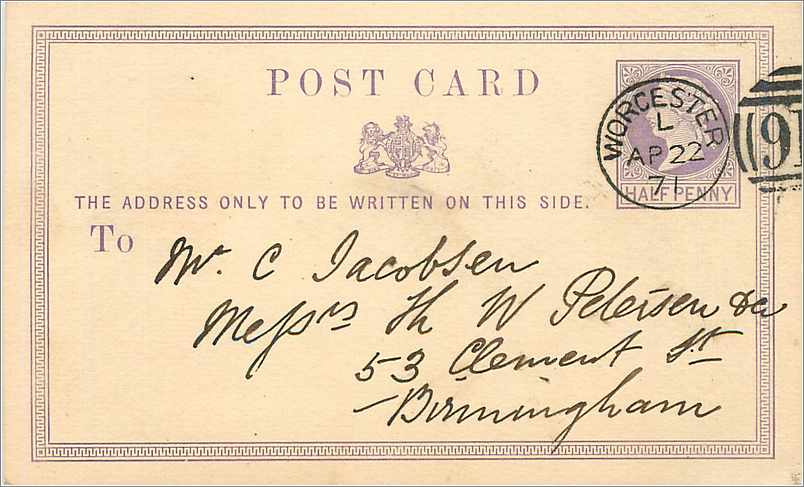 POST CARD
WORCESTER
L
AP 22
71
HALFPENNY
THE ADDRESS ONLY TO BE WRITTEN ON THIS SIDE.
To
Mr. C Jacobsen
Messrs Th W Petersen & Co
53 Clement St
Birmingham